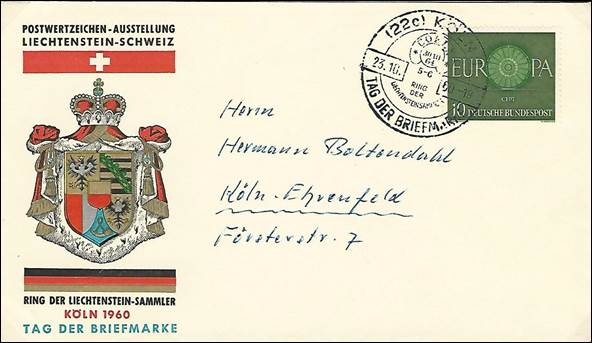 POSTWERTZEICHEN-AUSSTELLUNG
LIECHTENSTEIN-SCHWEIZ
RING DER LIECHTENSTEIN-SAMMLER
KÖLN 1960
TAG DER BRIEFMARKE
(22c) KÖLN
23.10.
5-6
RING
DER
TAG DER BRIEFMARKE
EUROPA
CEPT
10 DEUTSCHE BUNDESPOST
Herrn
Hermann Boltendahl
Köln-Ehrenfeld
Försterstr. 7